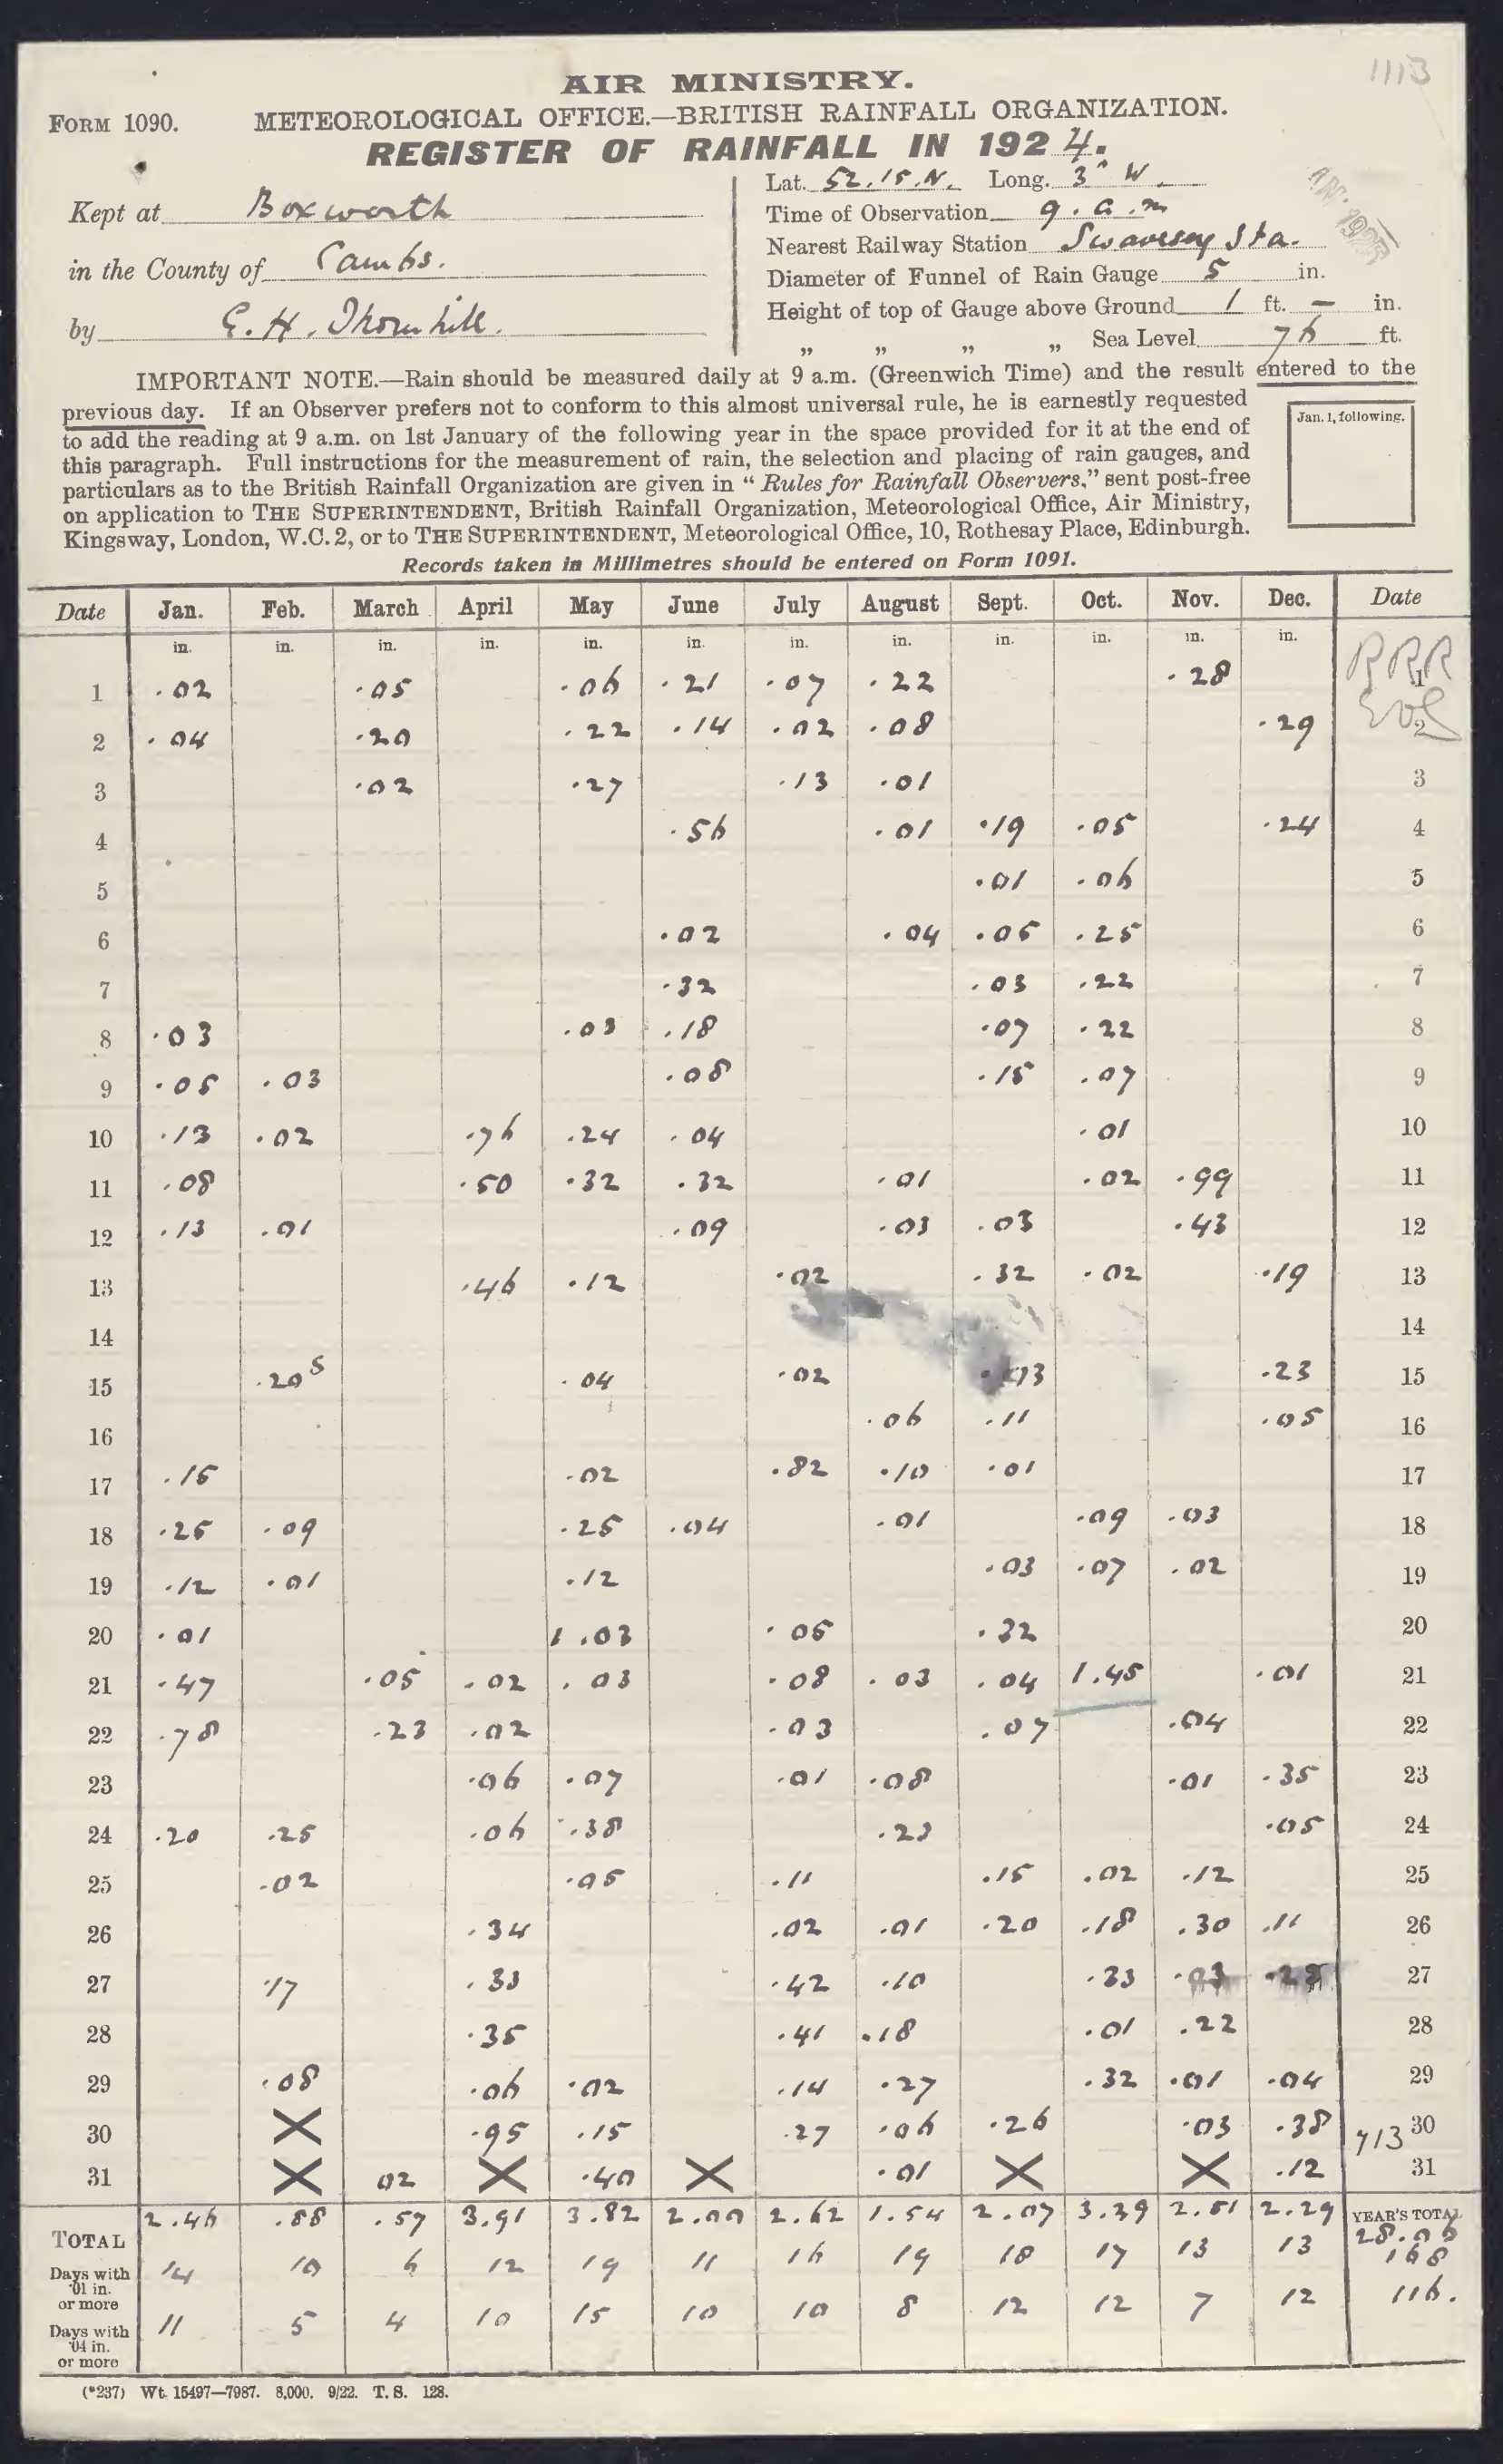 1113
AIR MINISTRY.
FORM 1090. METEOROLOGICAL OFFICE.—BRITISH RAINFALL ORGANIZATION.
REGISTER OF RAINFALL IN 1924.
Lat. 52.15.N. Long. 3° W.
Kept at Boxworth
Time of Observation 9.a.m
Nearest Railway Station Swavesey Sta.
in the County of Cambs.
Diameter of Funnel of Rain Gauge 5 in.
Height of top of Gauge above Ground 1 ft. — in.
by E. H. Thornhill.
„ „ „ „ Sea Level 76 ft.
APR. 1925
IMPORTANT NOTE.—Rain should be measured daily at 9 a.m. (Greenwich Time) and the result entered to the
previous day. If an Observer prefers not to conform to this almost universal rule, he is earnestly requested
to add the reading at 9 a.m. on 1st January of the following year in the space provided for it at the end of
this paragraph. Full instructions for the measurement of rain, the selection and placing of rain gauges, and
particulars as to the British Rainfall Organization are given in “Rules for Rainfall Observers,” sent post-free
on application to THE SUPERINTENDENT, British Rainfall Organization, Meteorological Office, Air Ministry,
Kingsway, London, W.C.2, or to THE SUPERINTENDENT, Meteorological Office, 10, Rothesay Place, Edinburgh.
Jan. 1, following.
Records taken in Millimetres should be entered on Form 1091.
Date Jan. Feb. March April May June July August Sept. Oct. Nov. Dec. Date
in. in. in. in. in. in. in. in. in. in. in. in.
RRR
1 .02 .05 .06 .21 .07 .22 .28 1
2 .04 .20 .22 .14 .02 .08 .29 2
3 .02 .27 .13 .01 3
4 .56 .01 .19 .05 .24 4
5 .01 .06 5
6 .02 .04 .05 .25 6
7 .32 .03 .22 7
8 .03 .03 .18 .07 .22 8
9 .05 .03 .08 .15 .07 9
10 .13 .02 .76 .24 .04 .01 10
11 .08 .50 .32 .32 .01 .02 .99 11
12 .13 .01 .09 .03 .03 .43 12
13 .46 .12 .02 .32 .02 .19 13
14 14
15 .20 S .04 .02 .03 .23 15
16 .06 .11 .05 16
17 .15 .02 .82 .10 .01 17
18 .25 .09 .25 .04 .01 .09 .03 18
19 .12 .01 .12 .03 .07 .02 19
20 .01 1.03 .05 .32 20
21 .47 .05 .02 .03 .08 .03 .04 1.45 .01 21
22 .78 .23 .02 .03 .07 .04 22
23 .06 .07 .01 .08 .01 .35 23
24 .20 .25 .06 .38 .23 .05 24
25 .02 .05 .11 .15 .02 .12 25
26 .34 .02 .01 .20 .18 .30 .11 26
27 .17 .33 .42 .10 .33 .03 27
28 .35 .41 .18 .01 .22 28
29 .08 .06 .02 .14 .27 .32 .01 .04 29
30 X .95 .15 .27 .06 .26 .03 .38 713 30
31 X 02 X .40 X .01 X X .12 31
TOTAL 2.46 .88 .57 3.91 3.82 2.00 2.62 1.54 2.07 3.39 2.51 2.29 YEAR'S TOTAL 28.06
Days with ·01 in. or more 14 10 6 12 19 11 16 19 18 17 13 13 168
Days with ·04 in. or more 11 5 4 10 15 10 10 8 12 12 7 12 116.
(*237) Wt. 15497—7987. 8,000. 9/22. T. S. 128.